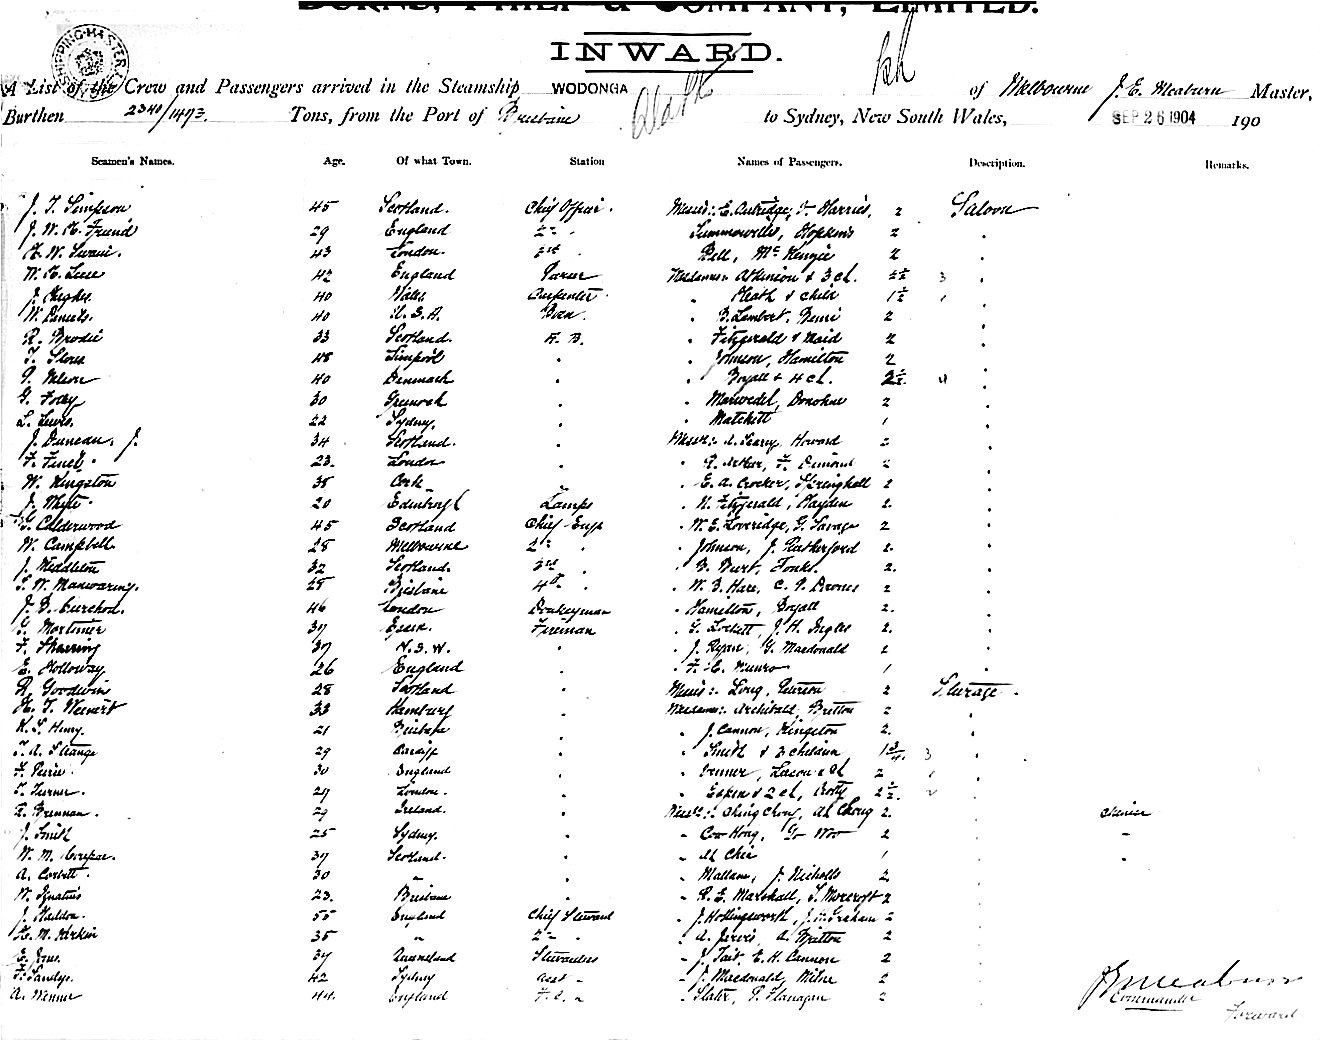 BURNS, PHILP & COMPANY, LIMITED.
SHIPPING MASTER
INWARD.
A List of the Crew and Passengers arrived in the Steamship WODONGA of Melbourne J. E. Meaburn Master,
Burthen 2341/1473 Tons, from the Port of Brisbane to Sydney, New South Wales, SEP 26 1904 190
Seamen's Names. Age. Of what Town. Station Names of Passengers. Description. Remarks.
J. T. Simpson 45 Scotland. Chief Officer. Messrs: E. Outridge, Harris, 2 Saloon
J. W. H. Friend 29 England 2nd " Hopkins 2
H. W. Swain. 43 London. 3rd " Bell, McKenzie 2
W. H. Leese 42 England Purser Mesdames Atkinson & 3 ch. 2½ 3
J. Hughes. 40 Wales Carpenter " Heath & child 1½ 1
W. Daniels. 40 U.S.A. " G. Lambert, 2
R. Brodie 33 Scotland. A. B. " Fitzgerald & Maid 2
T. 48 " Johnson, Hamilton 2
P. Nelson 40 Denmark " Boyall & 4 ch. 4
G. Foley 30 Greenock " Donohue 2
L. Lewis. 22 Sydney. " Matchett 1
J. Duncan. J. 34 Scotland. Messrs: Howard 2
F. 23. London " F. Dimond 2
W. Kingston 38 Cork " E. A. Crocker, 2
J. Whyte 20 Edinburgh Lamps " N. Fitzgerald, Hayden 2.
G. Calderwood 45 Scotland Chief Engr " W. E. Loveridge, G. Savage 2
W. Campbell 28 Melbourne 2nd " " Johnson, J. Rutherford 2.
J. Middleton 32 Scotland. 3rd " " G. Burt, Fonks. 2.
T. W. Manwaring. 25 Brisbane 4th " " W. B. Hare, 2
J. B. Curchod. 46 London Donkeyman " Hamilton, Boyall 2
Mortimer 37 Essex. Fireman " G. Lockett, J. H. Ingles 2.
F. Sharring 37 N.S.W. " J. Ryan, G. Macdonald 2
E. Holloway 26 England " F. E. Munro 1
R. Goodwin 28 Scotland Messrs: Long, Peterson 2 Steerage.
H. T. Weinert 33 Hamburg Mesdames: Archibald, Britton 2
K. S. Henry. 21 Brisbane " J. Cannon, Kingston 2.
T. A. Strange 29 Cardiff " Smith & 3 children 1¾. 3
F. 30 England " 2 1
T. Turner. 27 London. " & 2 ch, 2½. 2
T. Brennan. 29 Ireland. Messrs: Ching Chong, Ah Chong 2. Chinese
J. Smith 25 Sydney. " Cow Hong, Woo 2 "
W. M. 37 Scotland. " Ah Chee 1 "
A. Corbett. 30 " " Mallam, J. Nicholls 2
W. Ignatius 23. Brisbane " R. E. Marshall, T. Morcroft 2
J. Haddon. 55 England Chief Steward " J. Hollingsworth, J. H. Graham 2
H. M. Larkin 35 " 2nd " " A. Jarvis, A. Britton 2
E. Jones 37 Queensland Stewardess " J. Tait, E. H. Cannon 2
F. Sandys. 42 Sydney Asst " " J. Macdonald, Milne 2
A. Wenner 44. England F. C. " " Slater, P. Flanagan 2
J. E. Meaburn
Commander
Forward